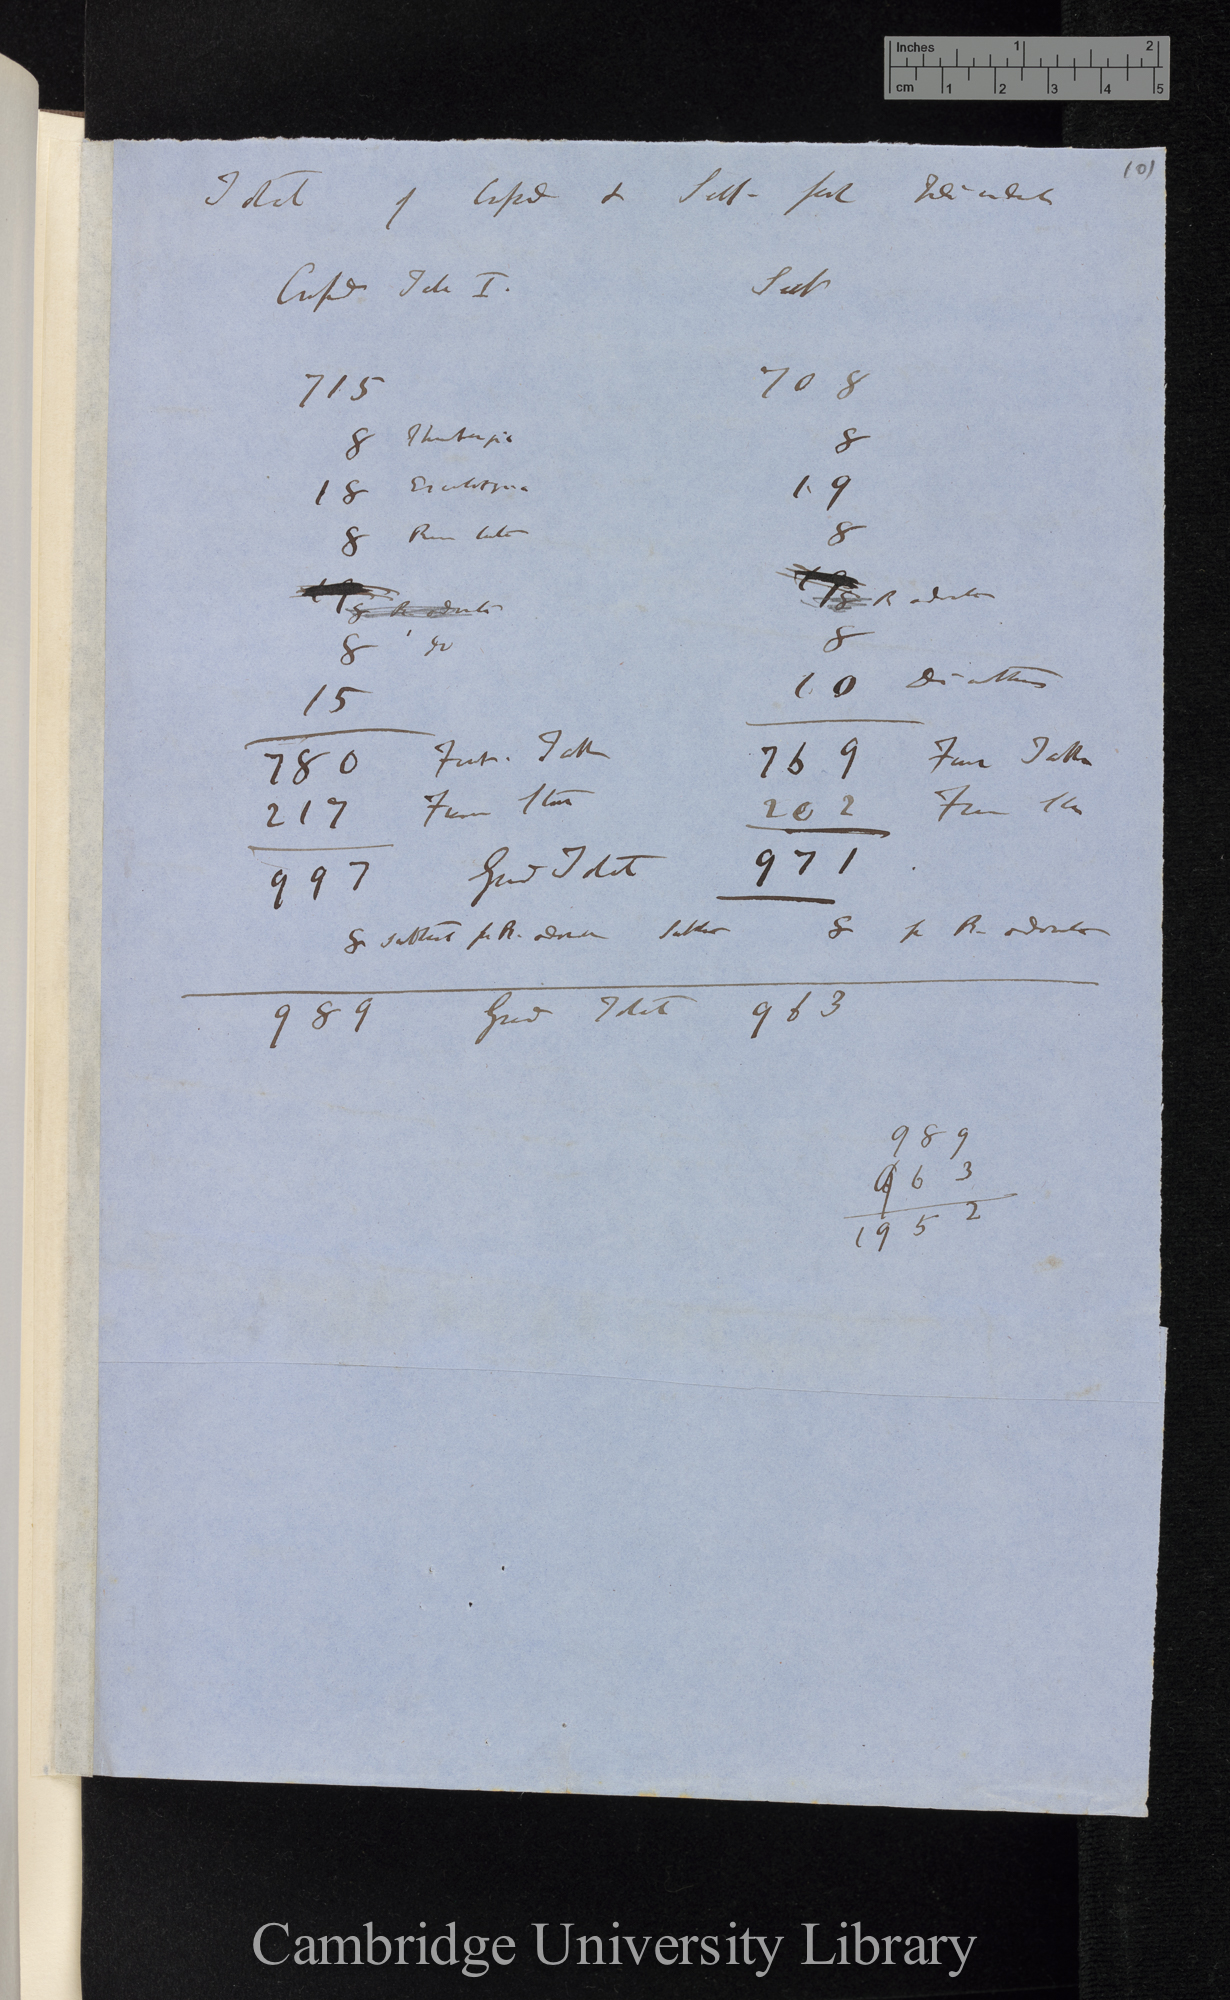 Inches 1 2
cm 1 2 3 4 5
101
Total of Crossed & Self- fert Individuals
Crossed Table I. Self
715 708
8 Thunbergia 8
18 Escholtzia 19
8 8
R odorata R odorata
8 do 8
15 10 Dianthus
780 From Table 769 From Table
217 From 202 From
997 Grand Total 971
8 subtract for R. odorata 8 for R. odorata
989 Grand Total 963
989
963
1952
Cambridge University Library